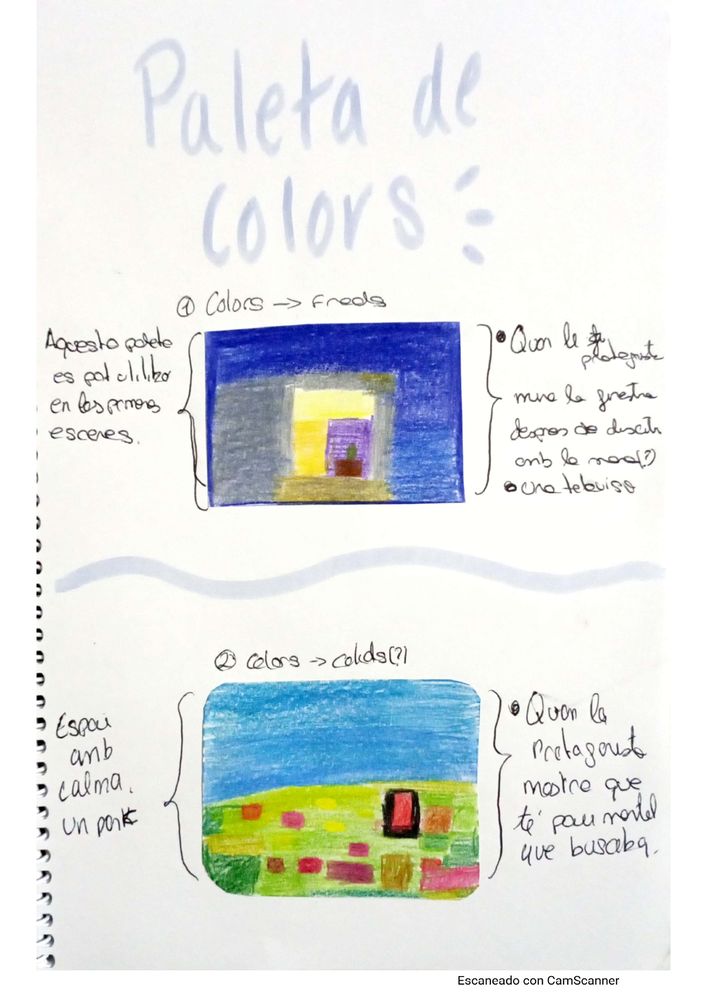 Paleta de
colors
① Colors → Freds
Aquesta paleta
es pot utilitzar
en las primeras
esceres.
• Quan la protagonista
mira la finestra
despres de discutir
amb la mare(?)
• una televisio
② Colors → Calids(?)
Espai
amb
calma.
un park
• Quan la
Protagonista
mostra que
té pau mental
que buscaba.
Escaneado con CamScanner